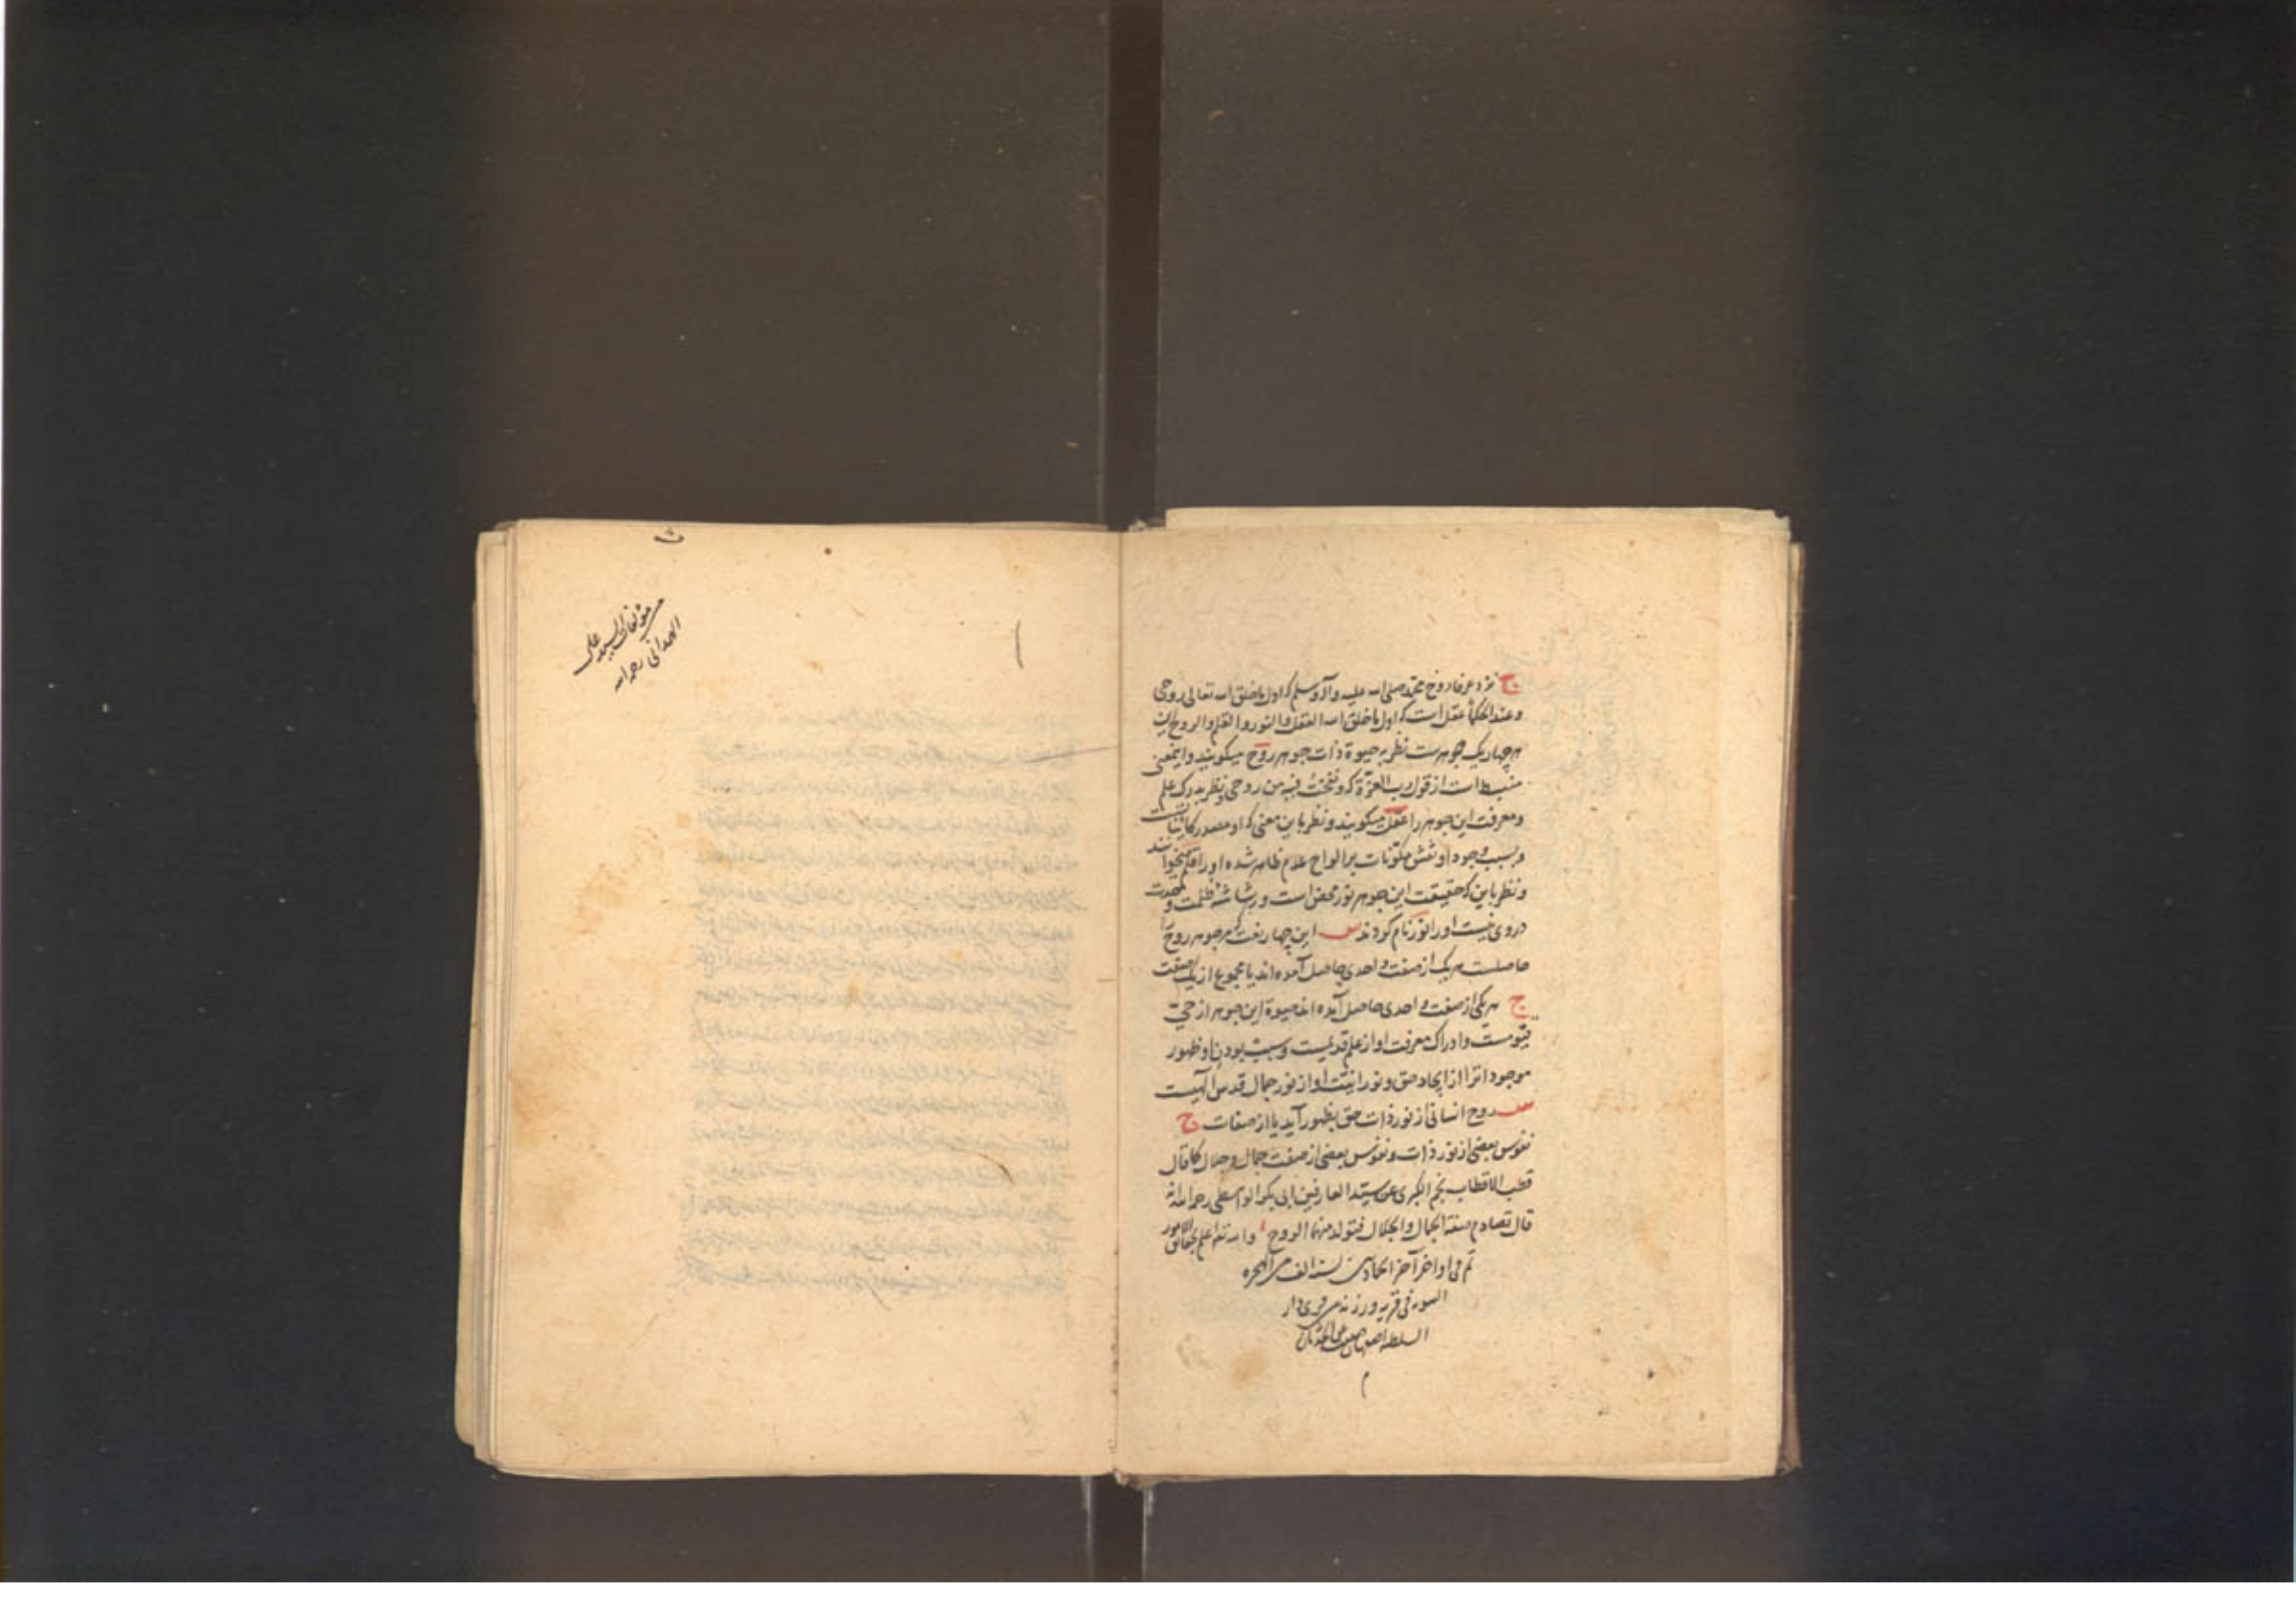 ج نزد عرفا روح محمد صلی الله علیه وآله وسلم که اول ما خلق الله تعالی روحی
وعند الحکماء عقل است که اول ما خلق الله العقل والنور والقلم والروح این
هر چهار یک جوهرست نظر به حیوة ذات جوهر روح میکویند واینمعنی
است از قول رب العزة که ونفخت فیه من روحی ونظر بدرک علم
ومعرفت این جوهر را عقل میکویند ونظر باین معنی که او مصدر کاینات
وبسبب وجود او نقش مکونات بر الواح عدم ظاهر شده او را قلم میخوانند
ونظر باین که حقیقت این جوهر نور محض است و ظلمت
در وی نیست او را نور نام کردند س این چهار نعت که مر جوهر روح را
حاصلست هر یک از صفت واحدی حاصل آمده اند یا مجموع از یک صفت
ج هر یکی از صفت واحدی حاصل آمده اند حیوة این جوهر از حی
قیومست وادراک معرفت او از علم قدیمست وسبب بودن او ظهور
موجوداترا از ایجاد حق ونورانیت او از نور جمال قدس الهیست
س روح انسانی از نور ذات حق بظهور آید یا از صفات ج
نفوس بعضی از نور ذات ونفوس بعضی از صفت جمال وجلال کما قال
قطب الاقطاب نجم الکبری عن سید العارفین ابی بکر الواسطی رحمه الله انه
قال تصادم صفة الجمال والجلال فتولد منهما الروح والله تعالی اعلم بحقائق الامور
تم فی اواخر آخر الجمادین لسنة الف من الهجرة
النبویه فی قریه ورزنه من قری دار
السلطنه اصفهان
م
من مؤلفات السید علی
الهمدانی رحمه الله